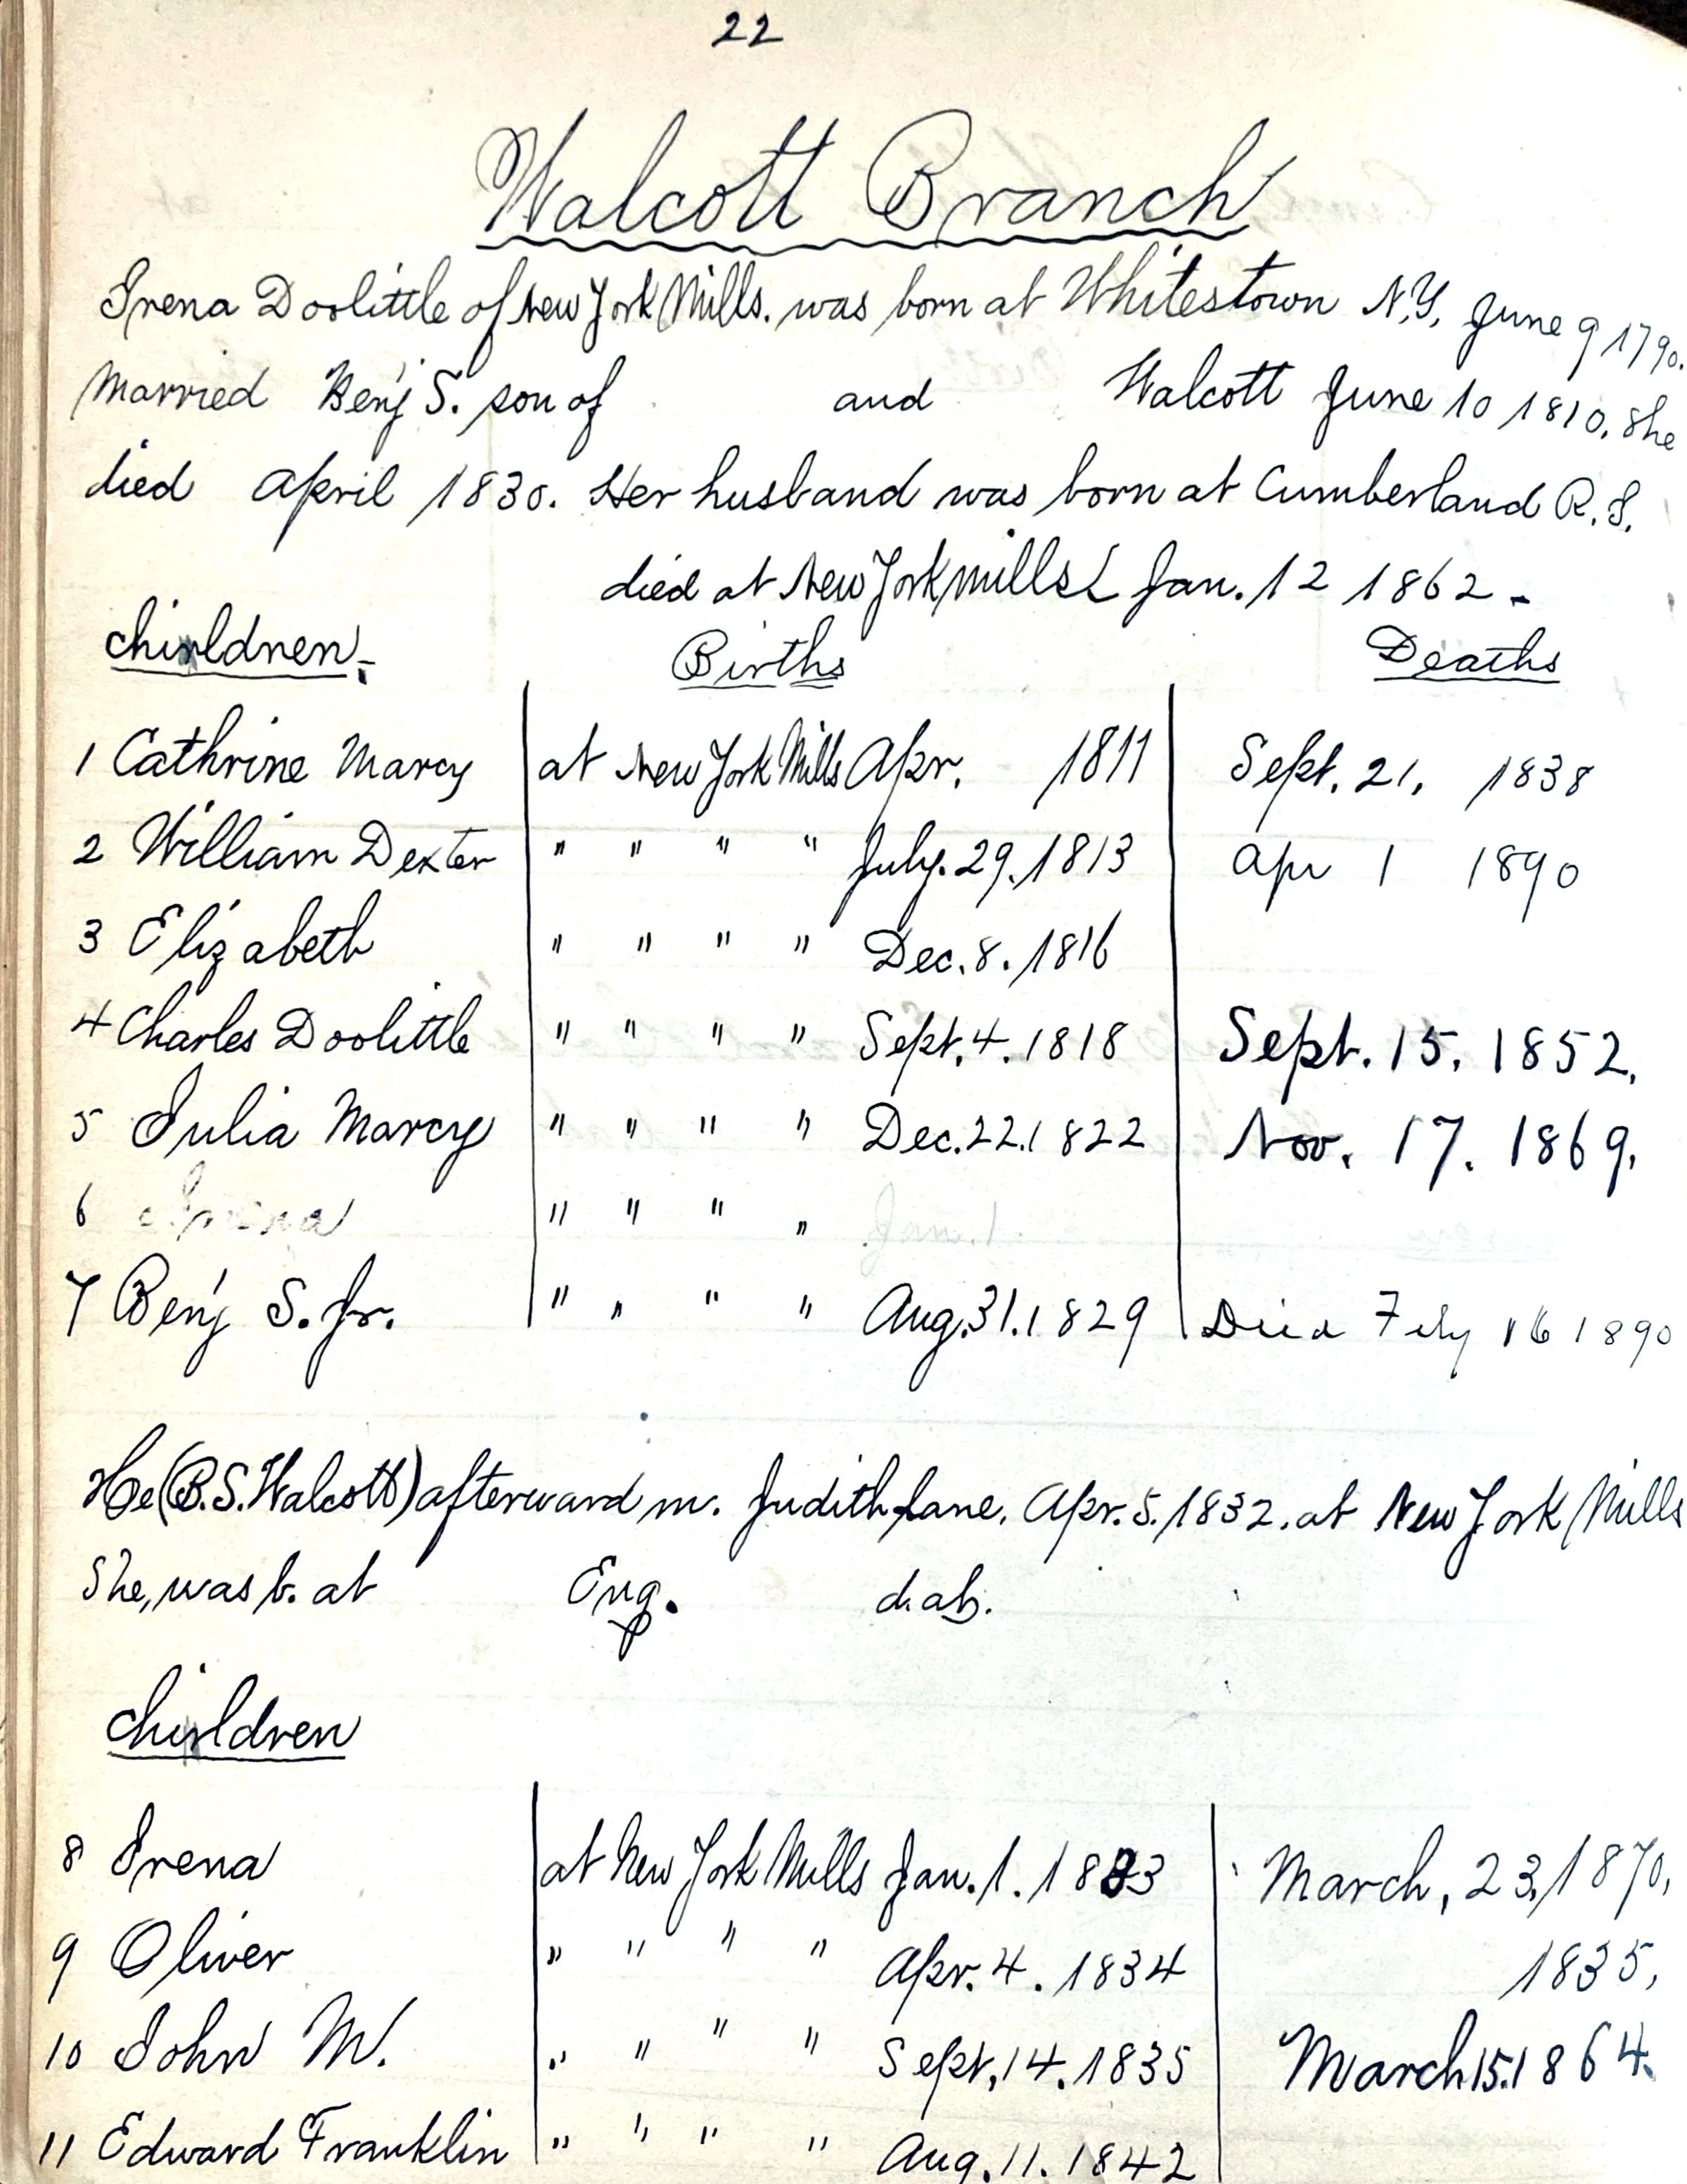 22
Walcott Branch
Irena Doolittle of New York Mills. was born at Whitestown N.Y. June 9 1790.
Married Benj S. son of and Walcott June 10 1810. She
died April 1830. Her husband was born at Cumberland R.I.
died at New York Mills Jan. 12 1862 -
Children. Births Deaths
1 Cathrine Marcy at New York Mills Apr. 1811 Sept. 21, 1838
2 William Dexter " " " " July. 29. 1813 Apr 1 1890
3 Elizabeth " " " " Dec. 8. 1816
4 Charles Doolittle " " " " Sept. 4. 1818 Sept. 15. 1852.
5 Julia Marcy " " " " Dec. 22. 1822 Nov. 17. 1869.
6 " " " " Jan. 1.
7 Benj S. Jr. " " " " Aug. 31. 1829 Died Feby 16 1890
He (B.S. Walcott) afterward m. Judith Lane, Apr. 5. 1832. at New York Mills
She, was b. at Eng. d. at.
Children
8 Irena at New York Mills Jan. 1. 1833 March, 23, 1870,
9 Oliver " " " " Apr. 4. 1834 1835,
10 John M. " " " " Sept. 14. 1835 March 15. 1864.
11 Edward Franklin " " " " Aug. 11. 1842